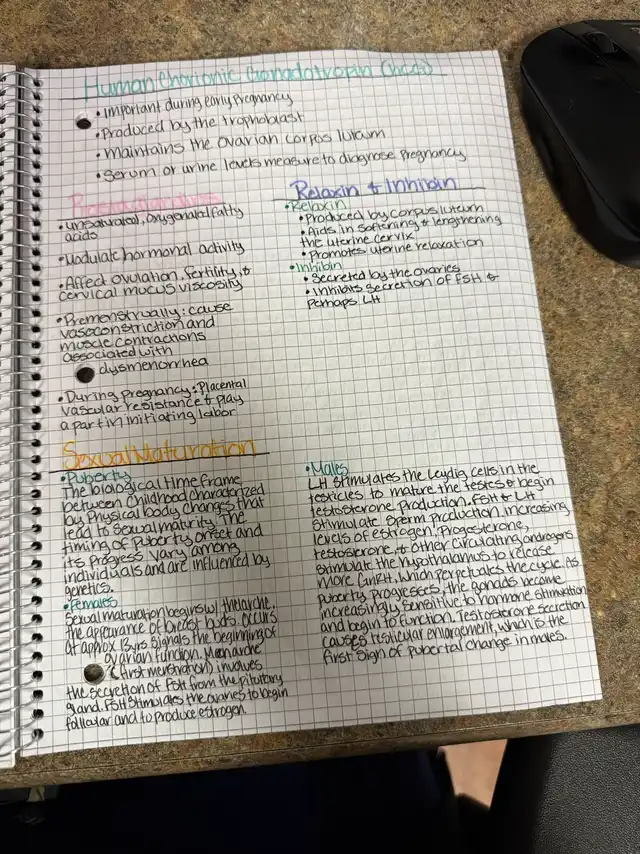 Human Chorionic Gonadotropin (hCG)
• Important during early pregnancy
• Produced by the trophoblast
• Maintains the ovarian corpus luteum
• Serum or urine levels measure to diagnose pregnancy
Prostaglandins
• unsaturated, oxygenated fatty
acids
• Modulate hormonal activity
• Affect ovulation, fertility, &
cervical mucus viscosity
• Premenstrually: cause
vasoconstriction and
muscle contractions
associated with
dysmenorrhea
• During pregnancy: Placental
vascular resistance & play
a part in initiating labor
Relaxin & Inhibin
• Relaxin
• Produced by corpus luteum
• Aids in softening & lengthening
the uterine cervix
• Promotes uterine relaxation
• Inhibin
• Secreted by the ovaries
• Inhibits secretion of FSH &
perhaps LH
Sexual Maturation
• Puberty
The biological time frame
between childhood characterized
by physical body changes that
lead to sexual maturity. The
timing of puberty onset and
its progress vary among
individuals and are influenced by
genetics.
• Females
Sexual maturation begins w/ thelarche,
the appearance of breast buds. Occurs
at approx 13yrs signals the beginning of
ovarian function. Menarche
(first menstration) involves
the secretion of FSH from the pituitary
gland. FSH stimulates the ovaries to begin
follicular and to produce estrogen.
• Males
LH stimulates the Leydig cells in the
testicles to mature the testes & begin
testosterone production. FSH & LH
stimulate sperm production, increasing
levels of estrogen, progesterone,
testosterone, & other circulating androgens
stimulate the hypothalamus to release
more GnRH, which perpetuates the cycle. As
puberty progresses, the gonads become
increasingly sensitive to hormone stimulation
and begin to function. Testosterone secretion
causes testicular enlargement, which is the
first sign of pubertal change in males.